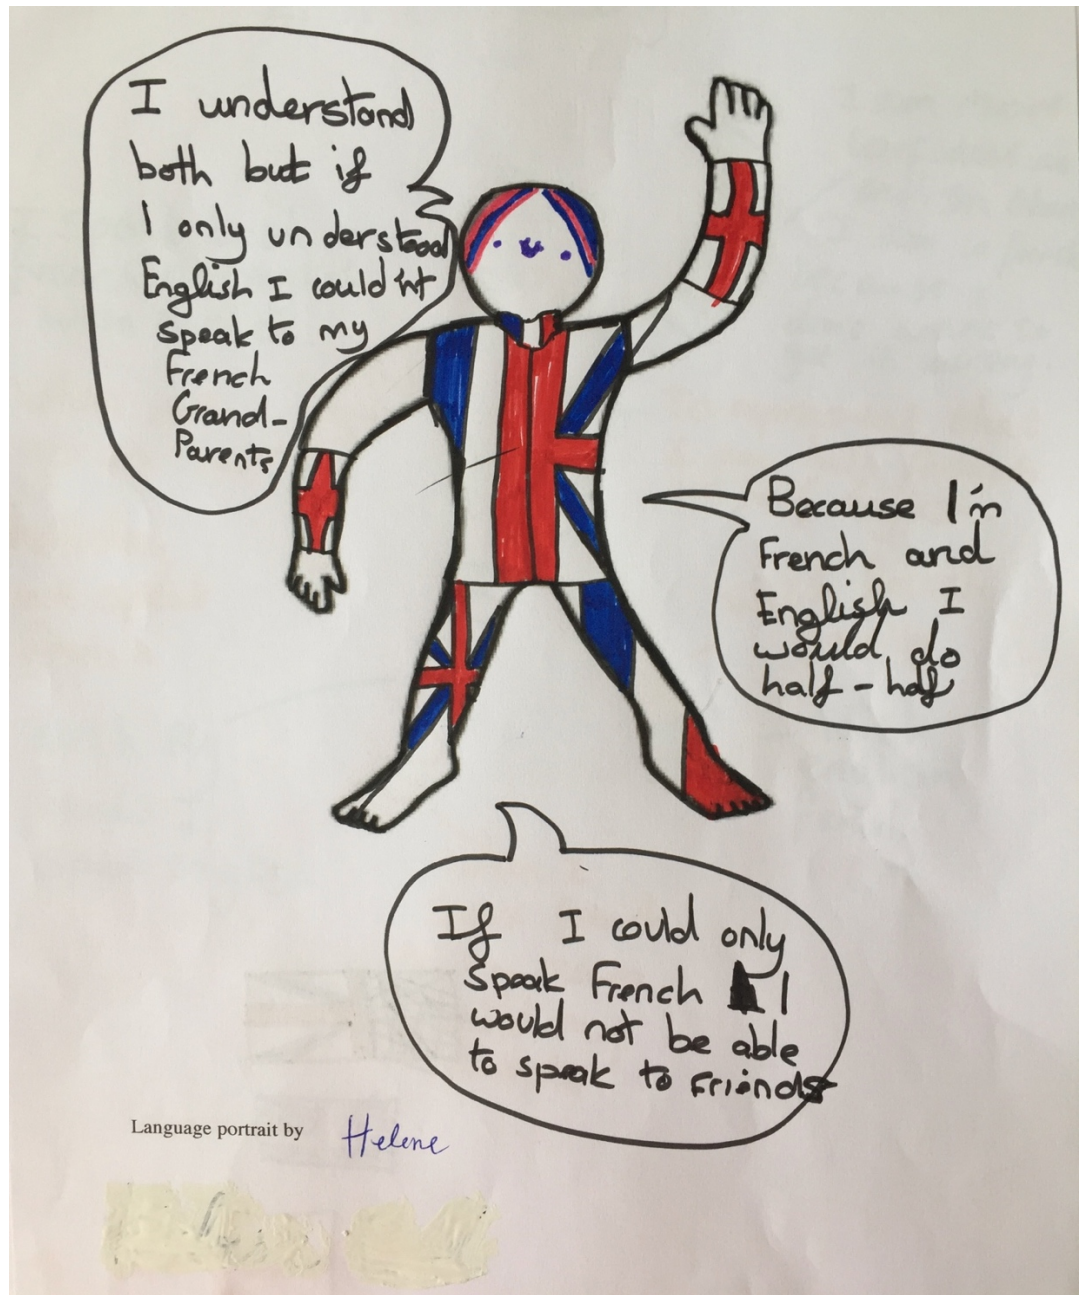 I understand
both but if
I only understood
English I could'nt
speak to my
French
Grand-
Parents
Because I'm
French and
English I
would do
half-half
If I could only
speak French I
would not be able
to speak to Friends
Language portrait by Helene